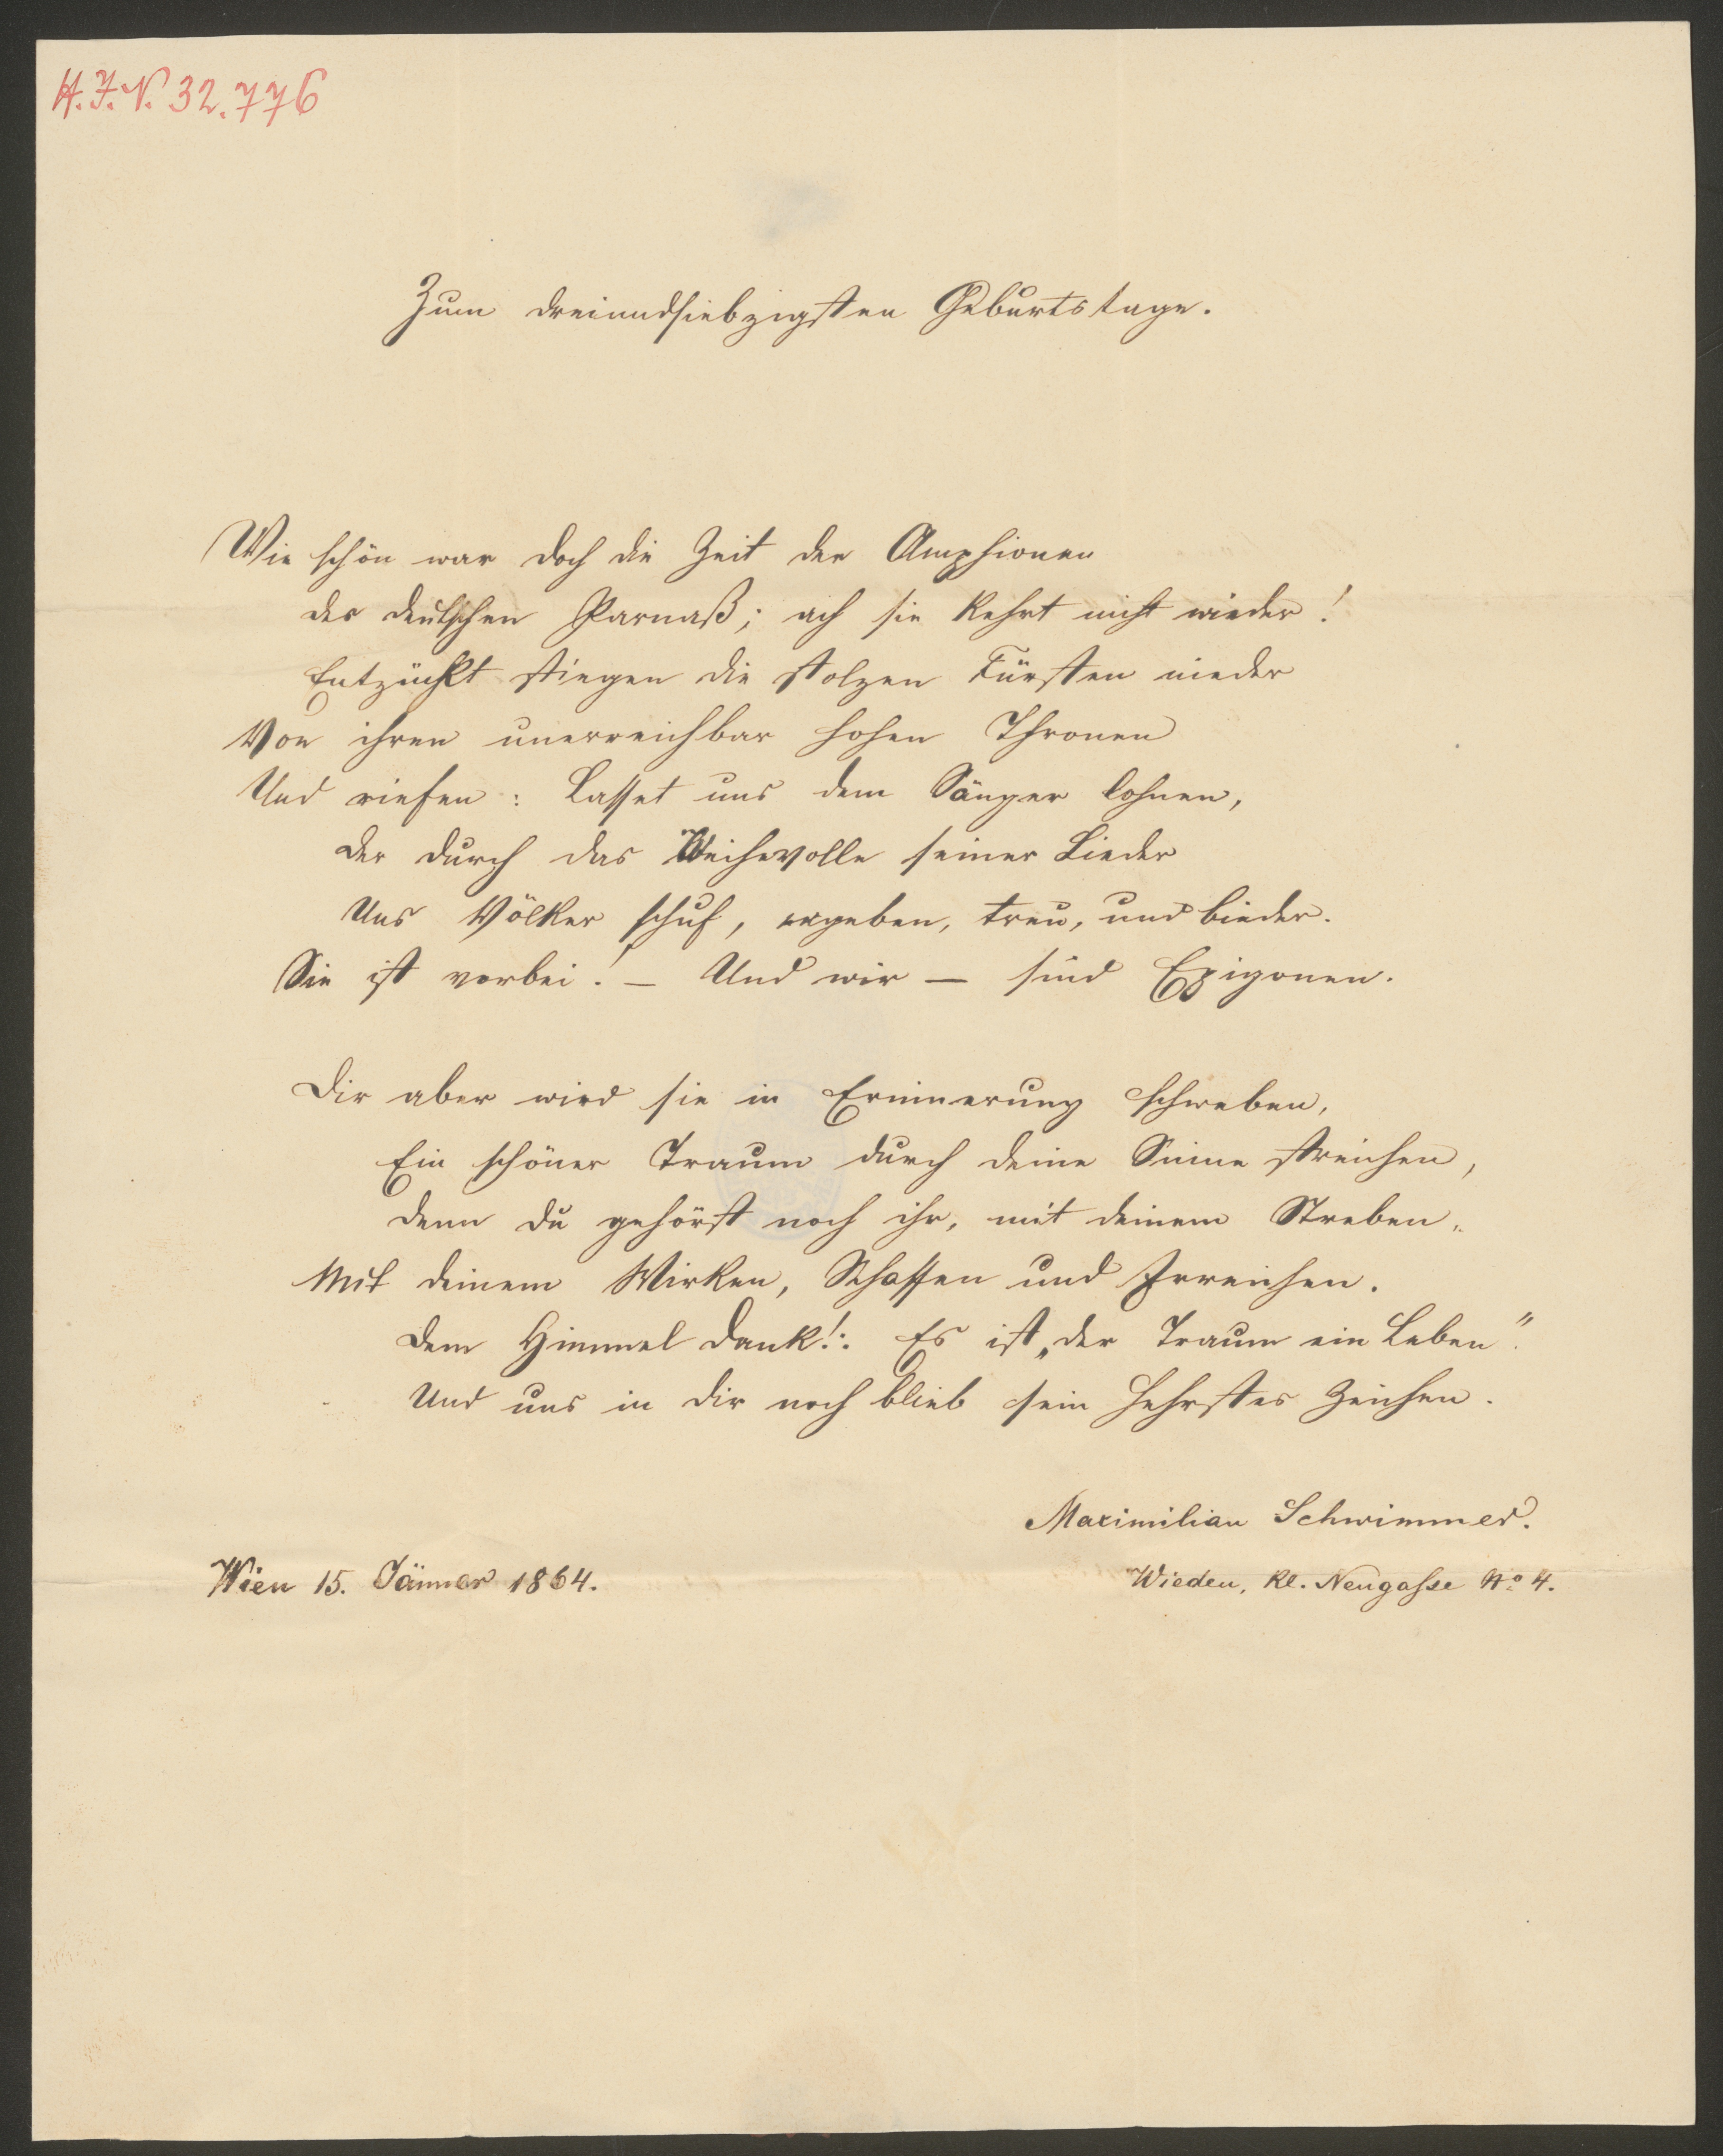 H.I.N. 32.776
Zum dreiundsiebzigsten Geburtstage.
Wie schön war doch die Zeit der Amphionen
des deutschen Parnaß; ach sie kehrt nicht wieder!
Entzückt stiegen die stolzen Fürsten nieder
Von ihren unerreichbar hohen Thronen
Und riefen: Lasset uns dem Sänger lohnen,
der durch das Weihevolle seiner Lieder
Uns Völker schuf, ergeben, treu, und bieder.
Sie ist vorbei! – Und wir – sind Epigonen.
Dir aber wird sie in Erinnerung schweben,
Ein schöner Traum durch deine Sinne streichen,
denn du gehörst noch ihr, mit deinem Streben,
Mit deinem Wirken, Schaffen und Erreichen.
Dem Himmel Dank!: Es ist „der Traum ein Leben".
Und uns in dir noch blieb sein hehrstes Zeichen.
Maximilian Schwimmer.
Wien 15. Jänner 1864.
Wieden, kl. Neugasse No 4.